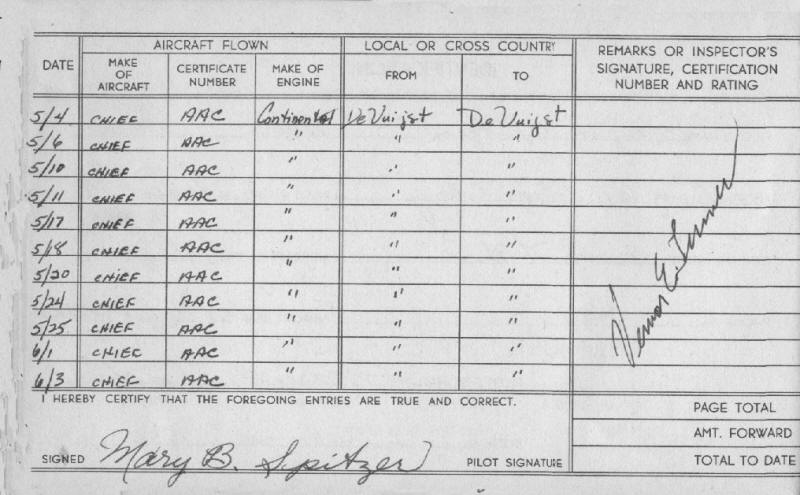 AIRCRAFT FLOWN LOCAL OR CROSS COUNTRY REMARKS OR INSPECTOR'S SIGNATURE, CERTIFICATION NUMBER AND RATING
DATE MAKE OF AIRCRAFT CERTIFICATE NUMBER MAKE OF ENGINE FROM TO
5/4 CHIEF AAC Continental DeVuijst DeVuijst
5/6 CHIEF AAC " " "
5/10 CHIEF AAC " " "
5/11 CHIEF AAC " " "
5/17 CHIEF AAC " " "
5/18 CHIEF AAC " " "
5/20 CHIEF AAC " " "
5/24 CHIEF AAC " " "
5/25 CHIEF AAC " " "
6/1 CHIEF AAC " " "
6/3 CHIEF AAC " " "
I HEREBY CERTIFY THAT THE FOREGOING ENTRIES ARE TRUE AND CORRECT. PAGE TOTAL
AMT. FORWARD
SIGNED Mary B. Spitzer PILOT SIGNATURE TOTAL TO DATE